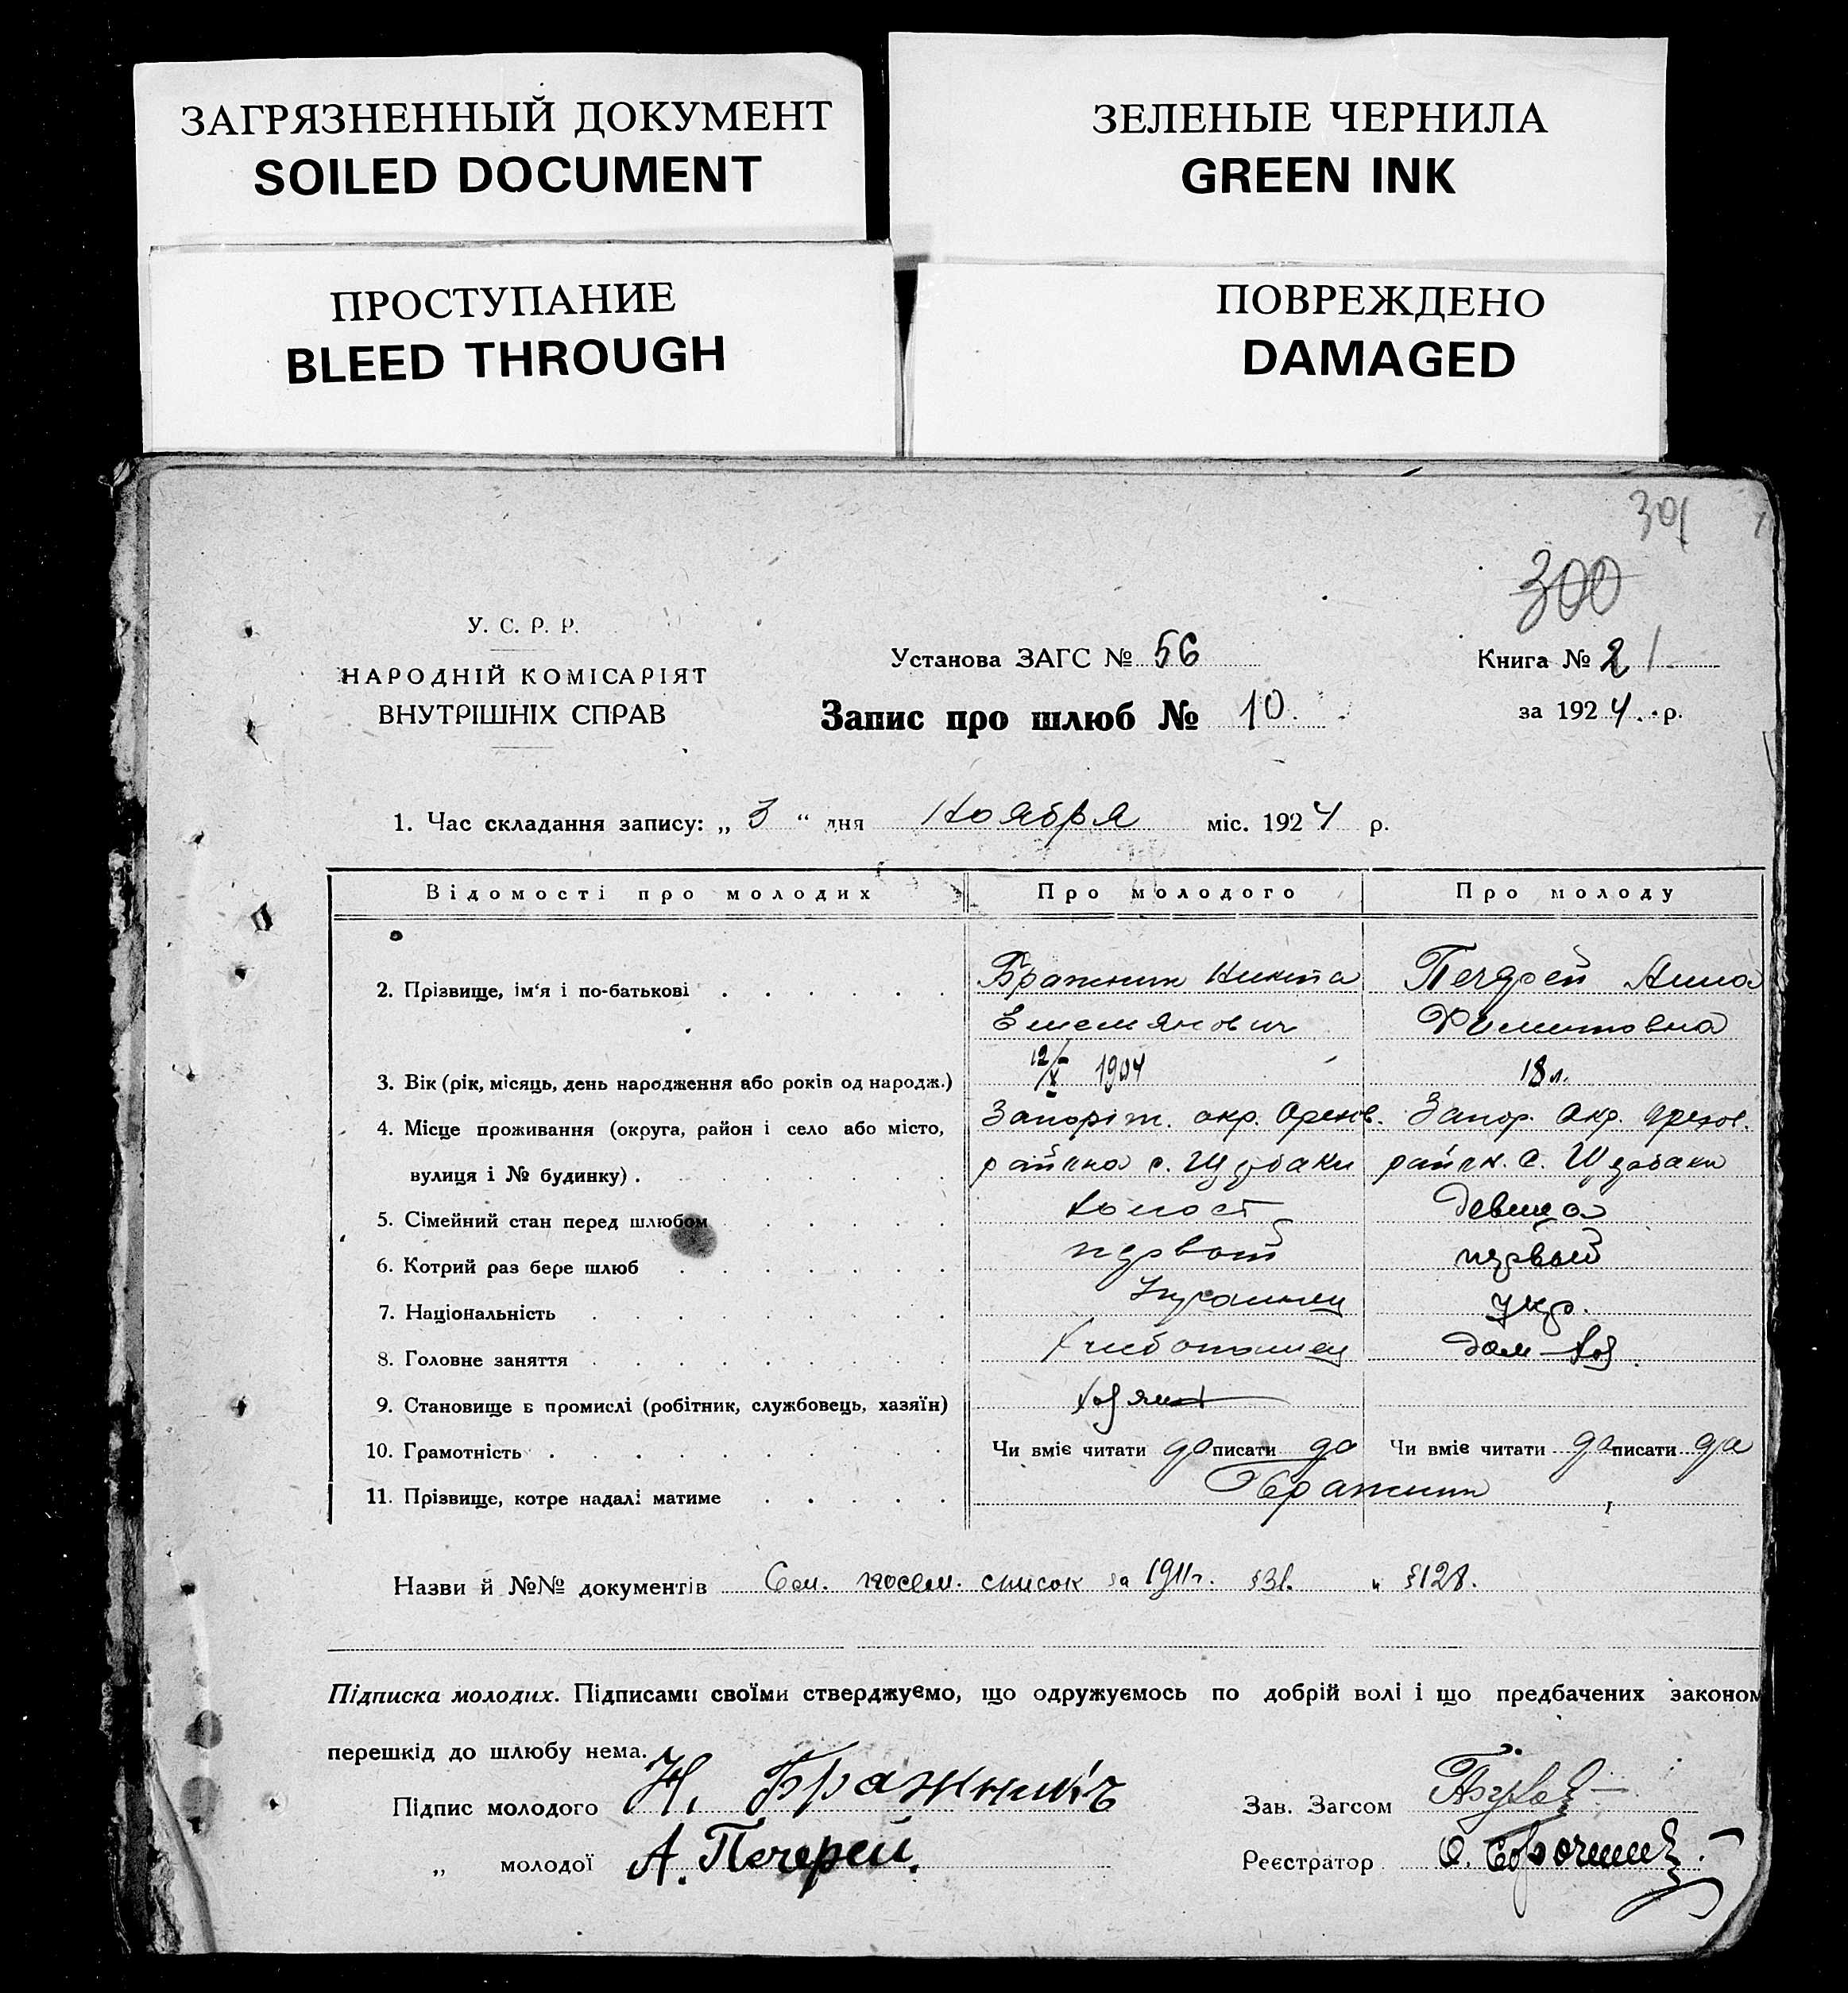 ЗАГРЯЗНЕННЫЙ ДОКУМЕНТ
SOILED DOCUMENT
ЗЕЛЕНЫЕ ЧЕРНИЛА
GREEN INK
ПРОСТУПАНИЕ
BLEED THROUGH
ПОВРЕЖДЕНО
DAMAGED
301
300
У. С. Р. Р.
НАРОДНІЙ КОМІСАРІЯТ
ВНУТРІШНІХ СПРАВ
Установа ЗАГС № 56
Запис про шлюб № 10.
Книга № 21
за 1924 р.
1. Час складання запису: „ 3 “ дня Ноября міс. 1924 р.
Відомості про молодих Про молодого Про молоду
2. Прізвище, ім'я і по-батькові Бражник Никита Печерей Анна
Емельянович Филиповна
3. Вік (рік, місяць, день народження або років од народж.) 12/X 1904 18 л.
4. Місце проживання (округа, район і село або місто, Запоріж. окр. Орехов. Запор. Окр. Орехов.
вулиця і № будинку) . района с. Щербаки район. с. Щербаки
5. Сімейний стан перед шлюбом холост девица
6. Котрий раз бере шлюб первый первый
7. Національність Украинец укр.
8. Головне заняття Хлебопашец дом-хоз.
9. Становище в промислі (робітник, службовець, хазяїн) хозяин
10. Грамотність Чи вміє читати да писати да Чи вміє читати да писати да
11. Прізвище, котре надалі матиме Бражник
Назви й №№ документів Сем. посем. список за 1911 г. §31. и §128.
Підписка молодих. Підписами своїми стверджуємо, що одружуємось по добрій волі і що предбачених законом
перешкід до шлюбу нема.
Підпис молодого Н. Бражникъ Зав. Загсом
„ молодої А. Печерей. Реєстратор